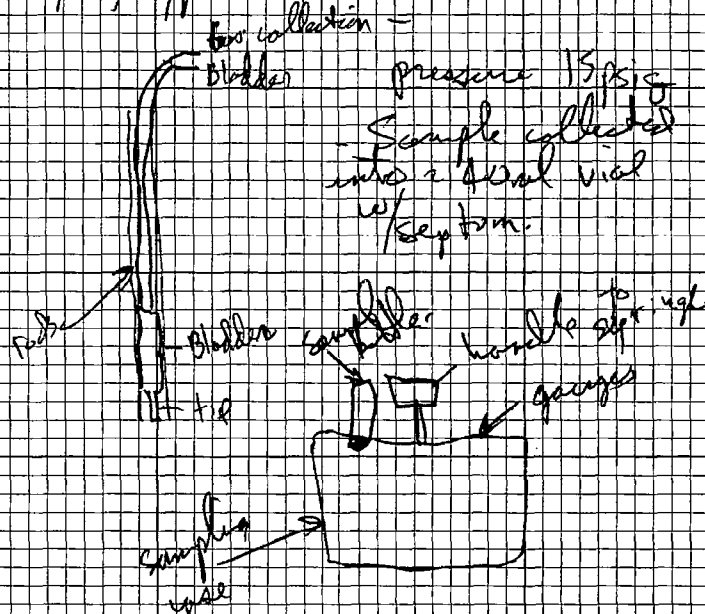 collection -
Bladder
pressure 15 psig
- Sample collected
into 2 40ml vial
w/
septom.
rods
- Bladder
sample
handle to syringe
gauges
- tip
Sampling
case